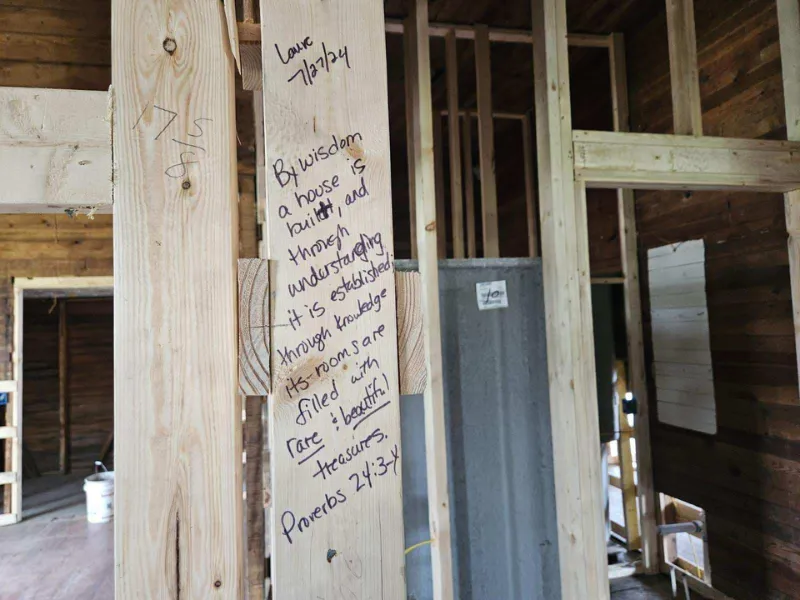 7/27/24
By wisdom
a house is
built, and
through
understanding
it is established;
through knowledge
its rooms are
filled with
rare & beautiful
treasures.
Proverbs 24:3-4